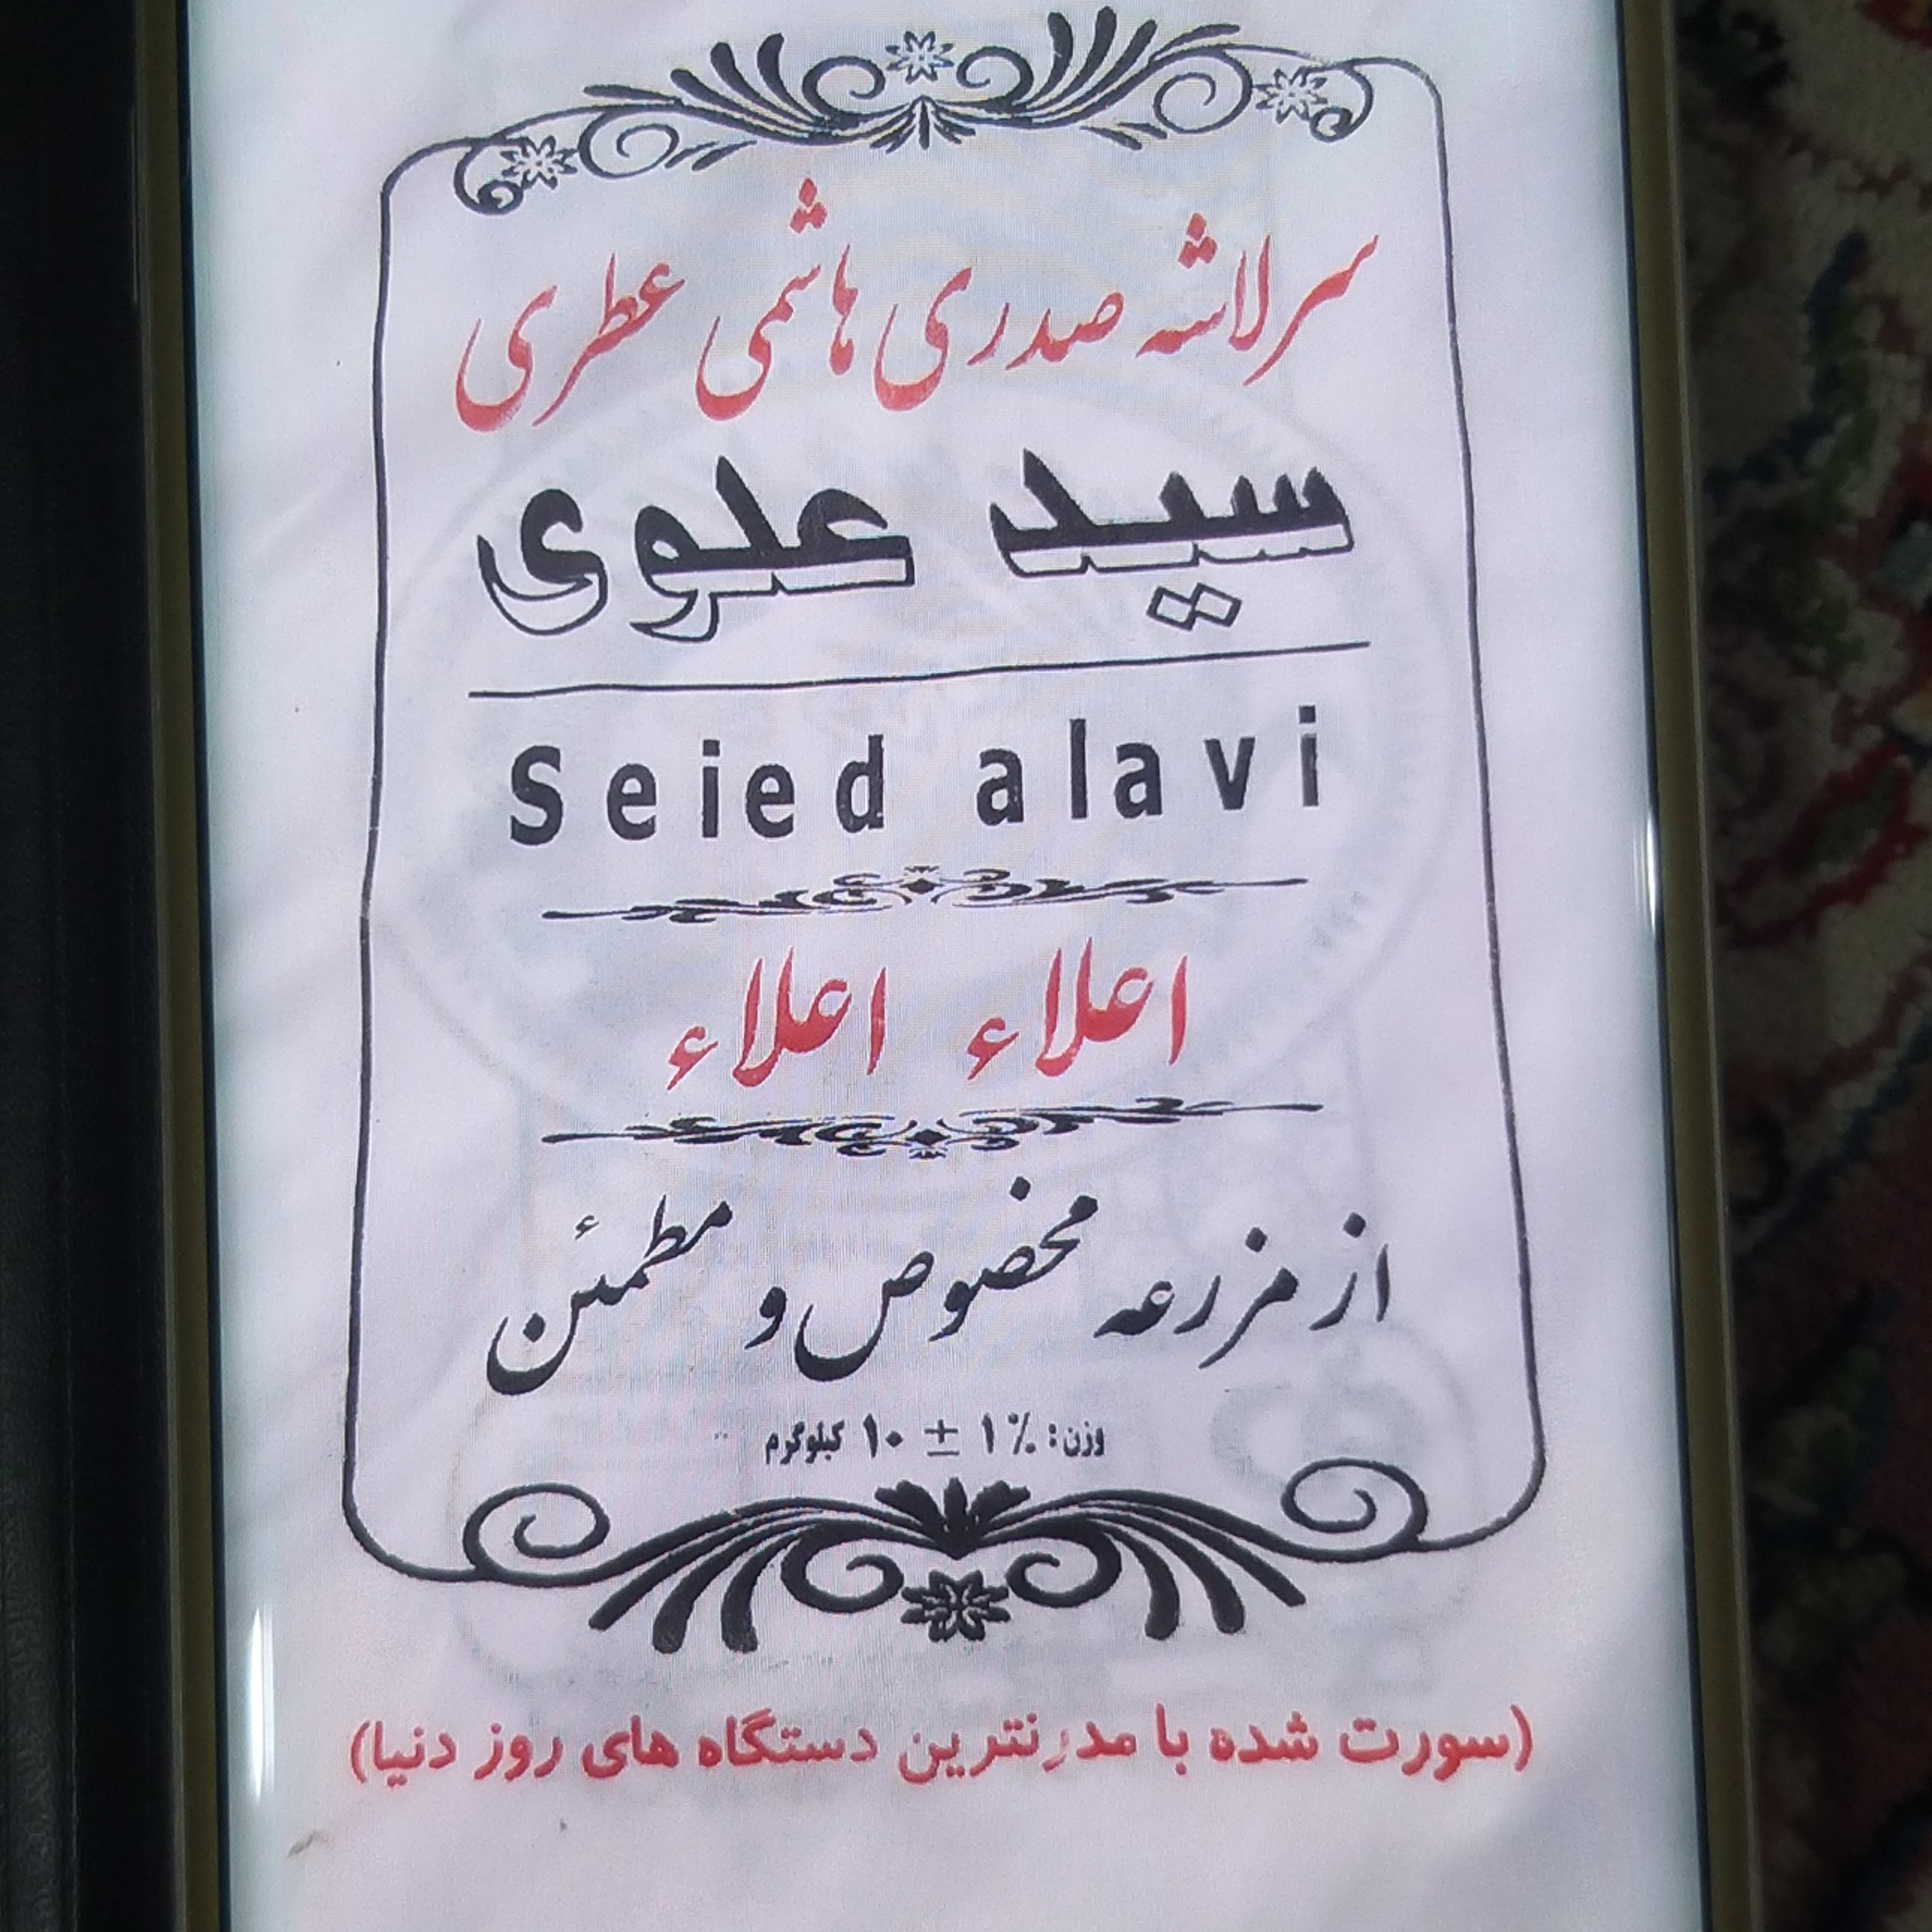 سرلاشه صدری هاشمی عطری
سید علوی
Seied alavi
اعلاء اعلاء
از مزرعه مخصوص و مطمئن
وزن: ٪۱ ± ۱۰ کیلوگرم
(سورت شده با مدرنترین دستگاه های روز دنیا)